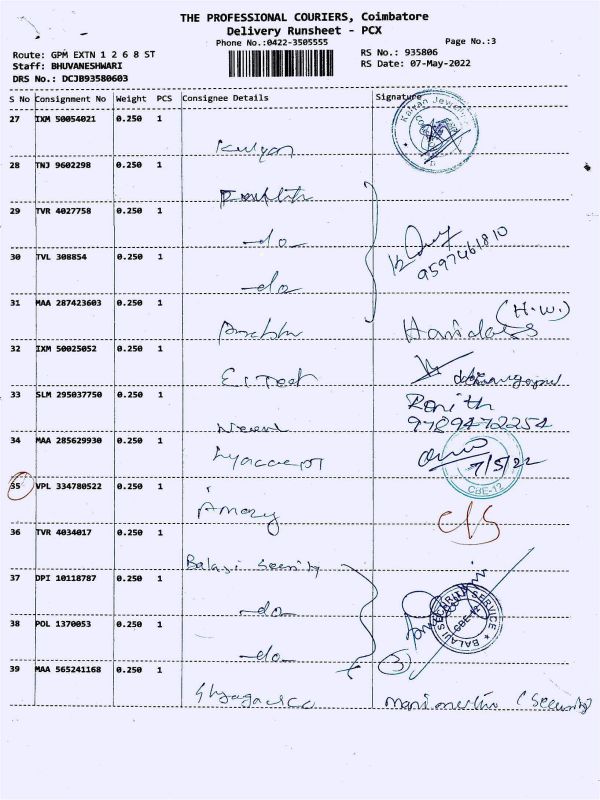 THE PROFESSIONAL COURIERS, Coimbatore
Delivery Runsheet - PCX
Phone No.:0422-3505555
Page No.:3
Route: GPM EXTN 1 2 6 8 ST
RS No.: 935806
Staff: BHUVANESHWARI
RS Date: 07-May-2022
DRS No.: DCJB93580603
S No Consignment No Weight PCS Consignee Details Signature
27 IXM 50054021 0.250 1
28 TNJ 9602298 0.250 1
29 TVR 4027758 0.250 1
-do-
9597461810
30 TVL 308854 0.250 1
-do-
31 MAA 287423603 0.250 1
(H.W.)
Haridass
32 IXM 50025052 0.250 1
33 SLM 295037750 0.250 1
Ronith
9789472254
34 MAA 285629930 0.250 1
7/5/22
CBE-12
35 VPL 334780522 0.250 1
36 TVR 4034017 0.250 1
Balaji Security
37 DPI 10118787 0.250 1
-do-
BALAJI SECURITY SERVICE
CBE-12
38 POL 1370053 0.250 1
-do-
3
39 MAA 565241168 0.250 1
(Security)